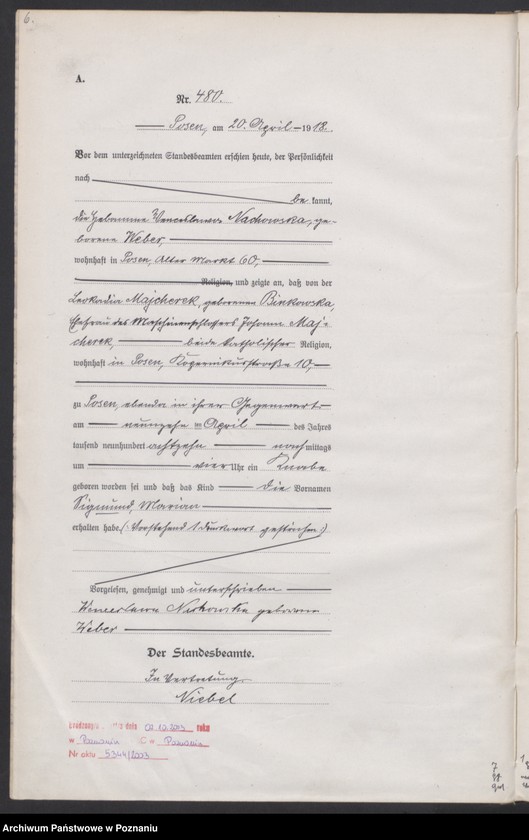 6.
A.
Nr. 480.
Posen, am 20. April 1918.
Vor dem unterzeichneten Standesbeamten erschien heute, der Persönlichkeit
nach
be kannt,
die Hebamme Wenceslawa Nachowska, ge-
borene Weber,
wohnhaft in Posen, Alter Markt 60,
Religion, und zeigte an, daß von der
Leokadia Majcherek, geborenen Binkowska,
Ehefrau des Maschinenschlossers Johann Maj-
cherek beide katholischer Religion,
wohnhaft in Posen, Kopernikusstraße 10,
zu Posen, ebenda in ihrer Gegenwart
am neunzehn ten April des Jahres
tausend neunhundert achtzehn nachmittags
um vier Uhr ein Knabe
geboren worden sei und daß das Kind die Vornamen
Sigmund, Marian
erhalten habe. (Vorstehend 1 Druckwort gestrichen)
Vorgelesen, genehmigt und unterschrieben
Wenceslawa geborene
Weber
Der Standesbeamte.
In Vertretung
Niebel
dnia 02.10.2003 roku
w Poznaniu Poznania
Nr aktu 5344/2003
Archiwum Państwowe w Poznaniu